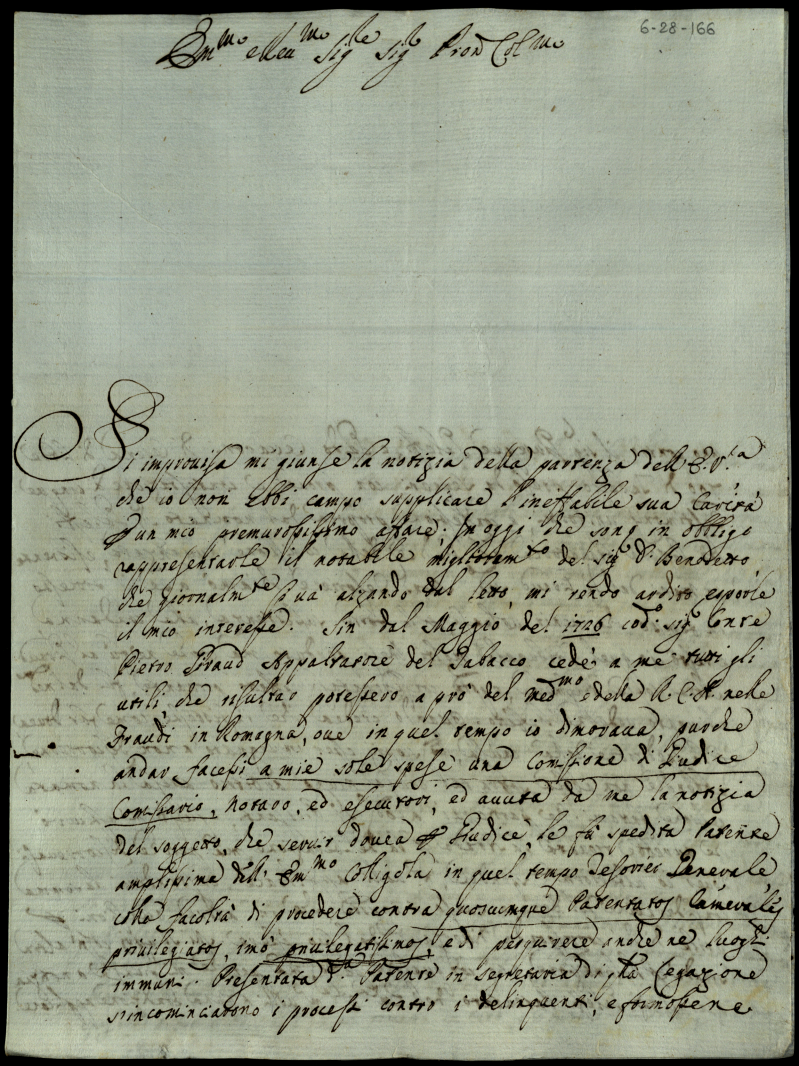 6-28-166
Em.mo e Reu.mo Sig.re Sig.r Pron Col.mo
Si improuisa mi giunse la notizia della partenza dell'E. V.ra
che io non ebbi campo supplicare l'ineffabile sua Carità
p un mio premurosissimo affare; In oggi che sono in obbligo
rappresentarle il notabile migliotam.to del Sig.r D. Benedetto,
che giornalm.te si uà alzando dal letto, mi rendo ardito esporle
il mio interesse. Sin dal Maggio del 1726 cod.o Sig.r Conte
Pietro Giraud Appaltatore del Tabacco cedè a me tutti gli
utili, che risultar potessero a prò del med.mo e della R. C. A. nelle
Fraudi in Romagna, oue in quel tempo io dimoraua, purche
andar facessi a mie sole spese una Comissione di Giudice
Comissario, Notaro, ed esecutori, ed auuta da me la notizia
del soggetto, che seruir douea p Giudice, le fù spedita Patente
amplissima dall' Em.mo Colligola in quel tempo Tesorier Generale
colla facoltà di procedere contra quoscumque Patentatos Camerales
priuilegiatos, imò priuilegiatissimos, e di perquirere anche ne luoghi
immuni. Presentata d.a Patente in Segretaria di q.ta Legazione
s'incominciarono i processi contro i delinquenti, e formossene